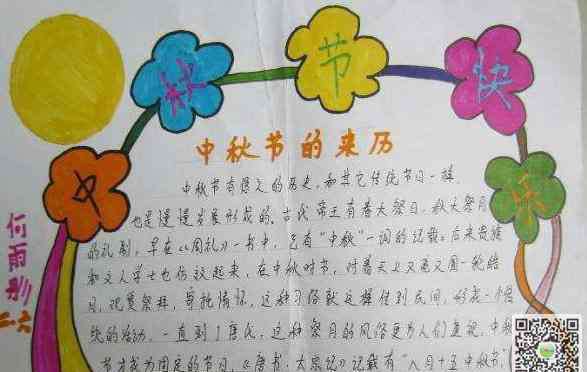 中秋节快乐
中秋节的来历
何雨彤
二.六
中秋节有悠久的历史，和其它传统节日一样，
也是慢慢发展形成的。古代帝王有春天祭日，秋天祭月
的礼制，早在《周礼》一书中，已有“中秋”一词的记载。后来贵族
和文人学士也仿效起来，在中秋时节，对着天上又亮又圆一轮皓
月，观赏祭拜，寄托情怀，这种习俗就这样传到民间，形成一个传
统的活动，一直到了唐代，这种祭月的风俗更为人们重视，中秋
节才成为固定的节日，《唐书·太宗记》记载有“八月十五中秋节”，